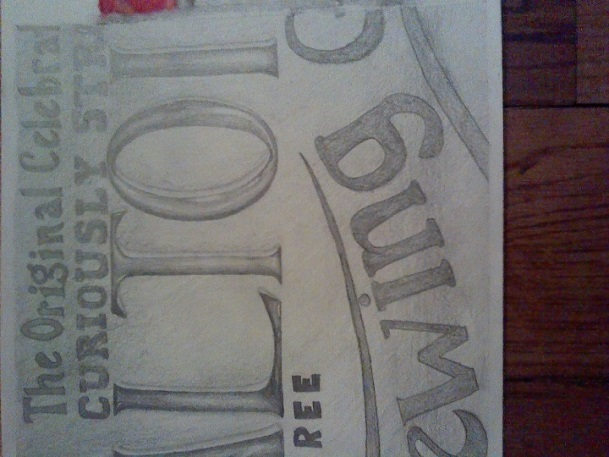 The Original Celebrat
CURIOUSLY STR
ALTOI
REE
ewing G